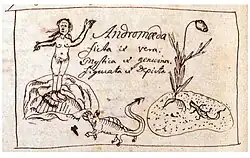 Andromeda
ficta et vera.
Mystica et genuina.
figurata et depicta.